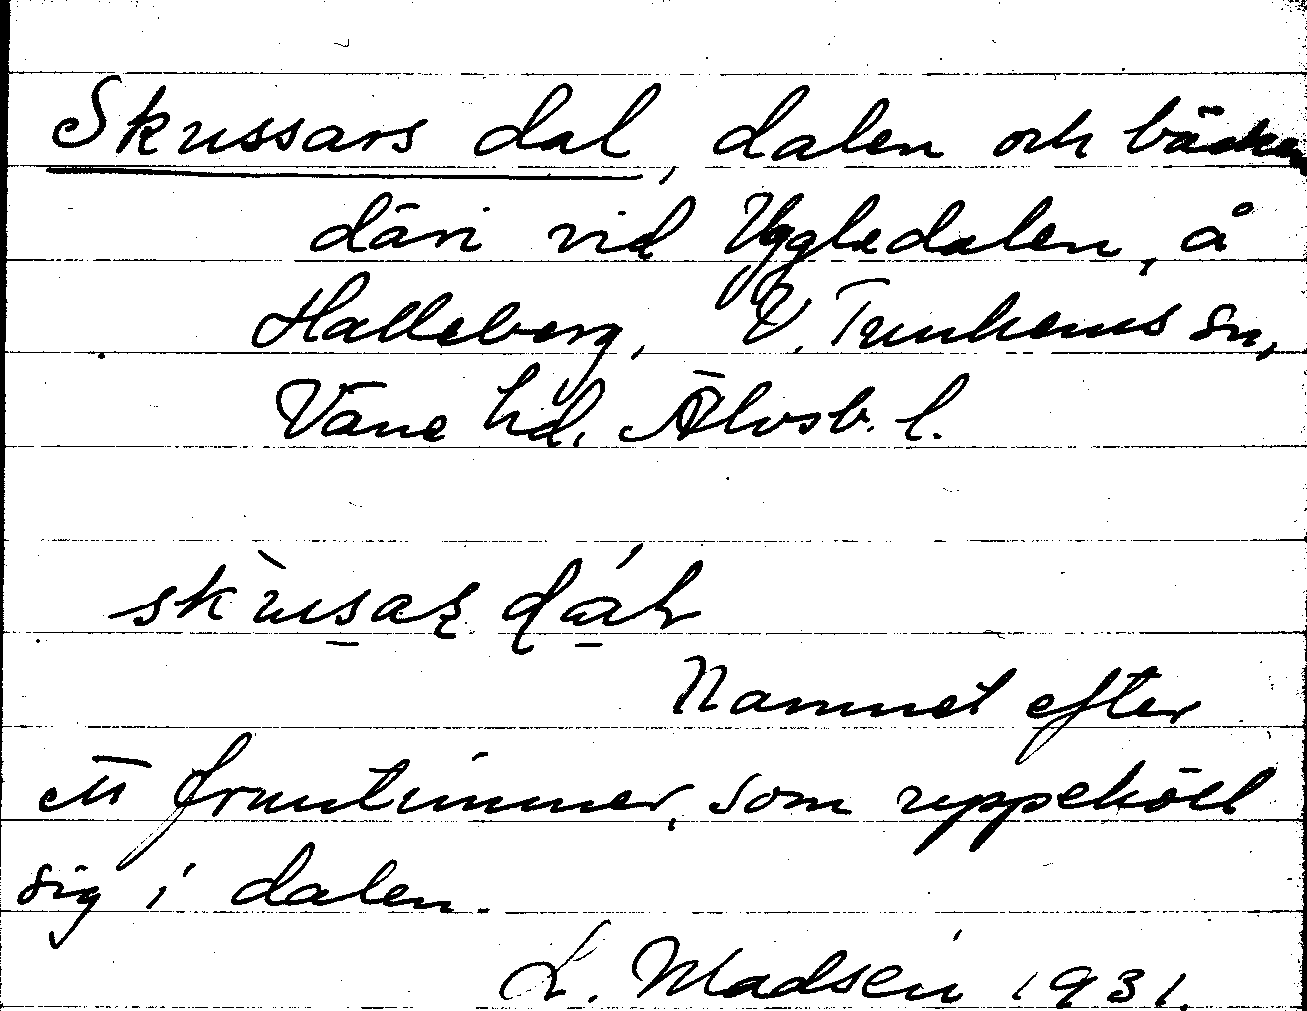 Skussars dal, dalen och bäcken
däri vid Uggledalen, å
Halleberg, V. Tunhems sn,
Väne hd, Älvsb. l.
skusaʂ dal
Namnet efter
ett fruntimmer, som uppehöll
sig i dalen.
L. Madsén 1931.